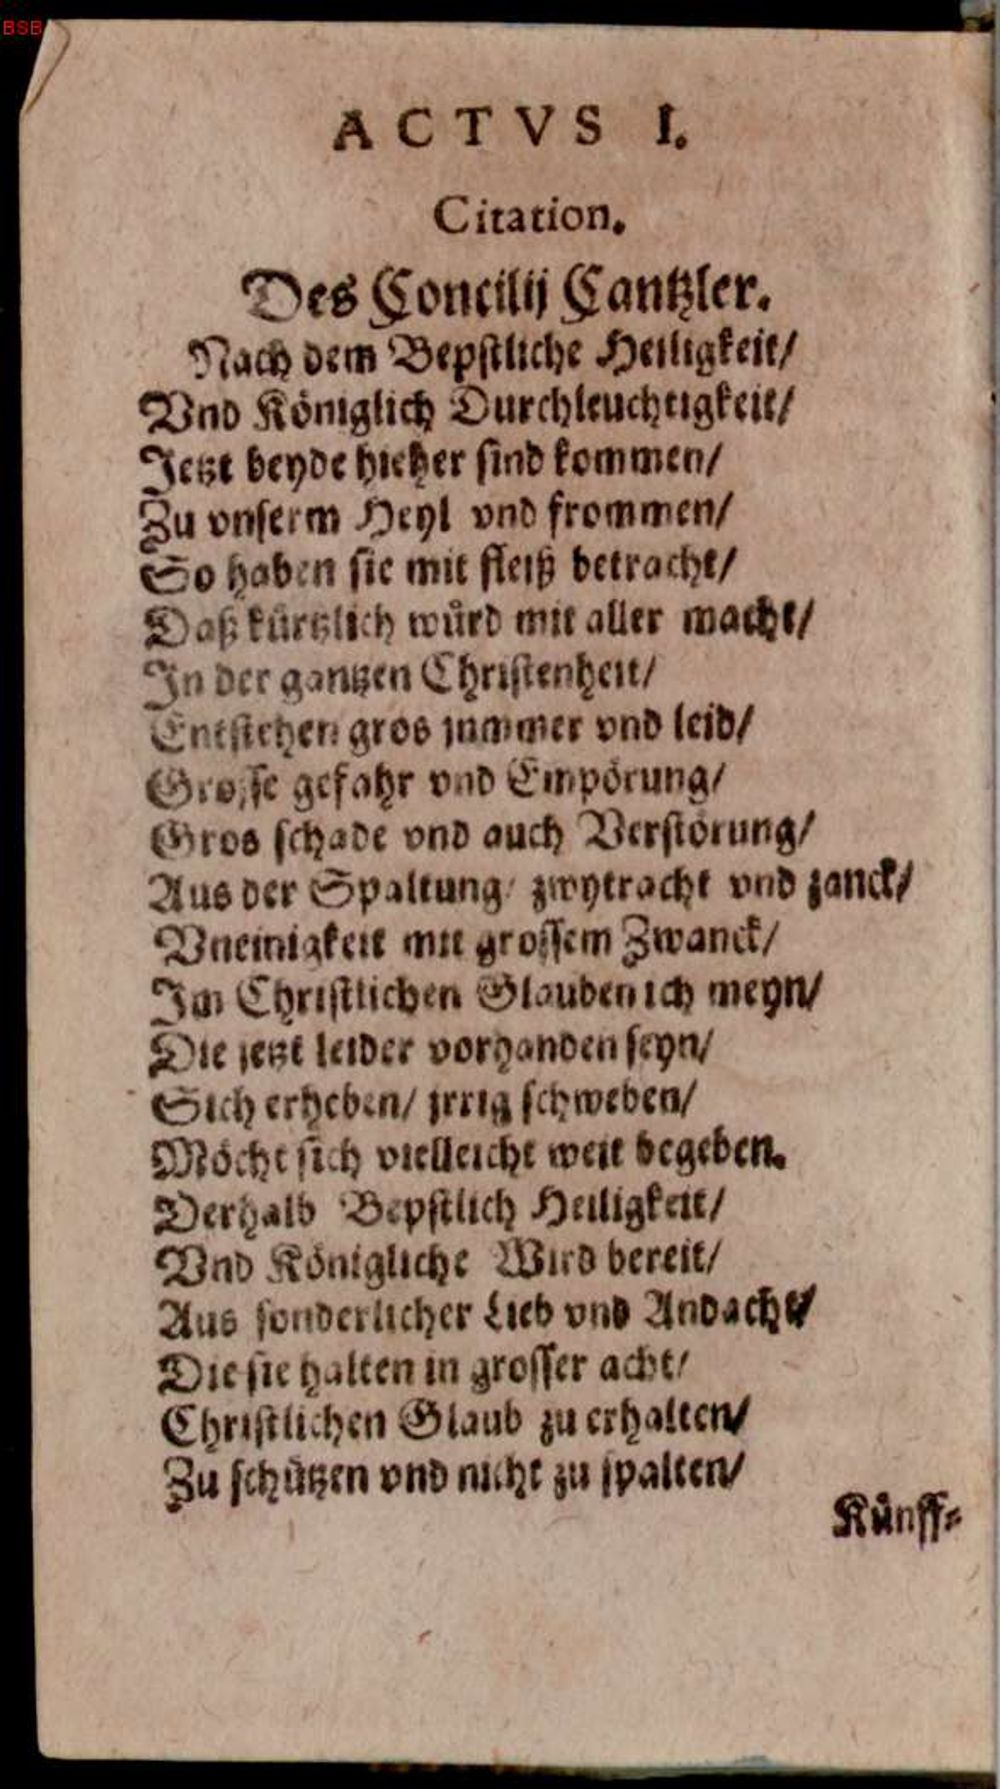 BSB
ACTVS I.
Citation.
Des Concilij Cantzler.
Nach dem Bepstliche Heiligkeit/
Vnd Königlich Durchleuchtigkeit/
Jetzt beyde hieher sind kommen/
Zu vnserm Heyl vnd frommen/
So haben sie mit fleiß betracht/
Daß kürtzlich würd mit aller macht/
In der gantzen Christenheit/
Entstehen gros jammer vnd leid/
Grosse gefahr vnd Empörung/
Gros schade vnd auch Verstörung/
Aus der Spaltung/ zwytracht vnd zanck/
Vneinigkeit mit grossem Zwanck/
Im Christlichen Glauben ich meyn/
Die jetzt leider vorhanden seyn/
Sich erheben/ jrrig schweben/
Möcht sich vielleicht weit begeben.
Derhalb Bepstlich Heiligkeit/
Vnd Königliche Wird bereit/
Aus sonderlicher Lieb vnd Andacht/
Die sie halten in grosser acht/
Christlichen Glaub zu erhalten/
Zu schützen vnd nicht zu spalten/
Künff=